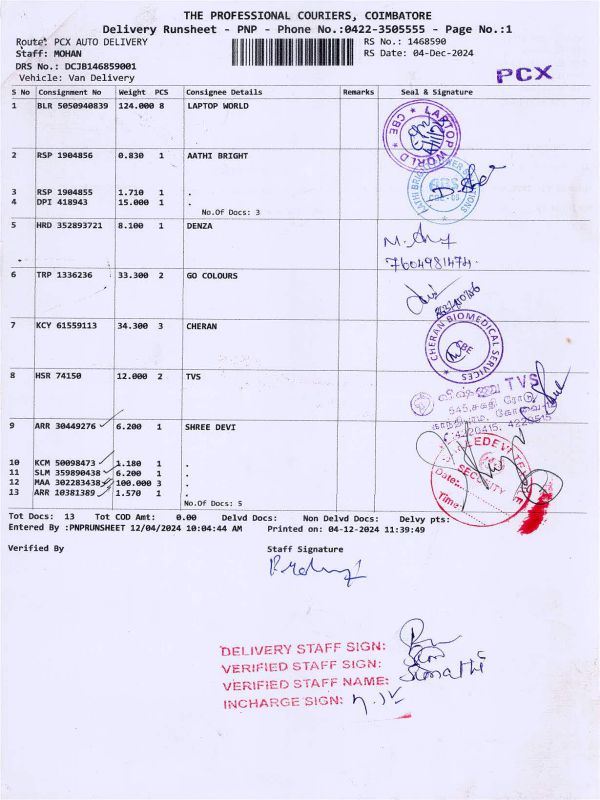 THE PROFESSIONAL COURIERS, COIMBATORE
Delivery Runsheet - PNP - Phone No.:0422-3505555 - Page No.:1
Route: PCX AUTO DELIVERY RS No.: 1468590
Staff: MOHAN RS Date: 04-Dec-2024
DRS No.: DCJB146859001
Vehicle: Van Delivery PCX
S No Consignment No Weight PCS Consignee Details Remarks Seal & Signature
1 BLR 5050940839 124.000 8 LAPTOP WORLD
LAPTOP WORLD CBE
2 RSP 1904856 0.830 1 AATHI BRIGHT
3 RSP 1904855 1.710 1 .
4 DPI 418943 15.000 1 .
No.Of Docs: 3
5 HRD 352893721 8.100 1 DENZA
7604981474.
6 TRP 1336236 33.300 2 GO COLOURS
7 KCY 61559113 34.300 3 CHERAN
CHERAN BIOMEDICAL SERVICES CBE
8 HSR 74150 12.000 2 TVS
TVS
545,சக்தி ரோடு
9 ARR 30449276 6.200 1 SHREE DEVI
10 KCM 50098473 1.180 1 .
11 SLM 359890438 6.200 1 .
12 MAA 302283438 100.000 3 .
13 ARR 10381389 1.570 1 .
No.Of Docs: 5
SECURITY
Date:
Time:
Tot Docs: 13 Tot COD Amt: 0.00 Delvd Docs: Non Delvd Docs: Delvy pts:
Entered By :PNPRUNSHEET 12/04/2024 10:04:44 AM Printed on: 04-12-2024 11:39:49
Verified By Staff Signature
DELIVERY STAFF SIGN:
VERIFIED STAFF SIGN:
VERIFIED STAFF NAME: Sumathi
INCHARGE SIGN: